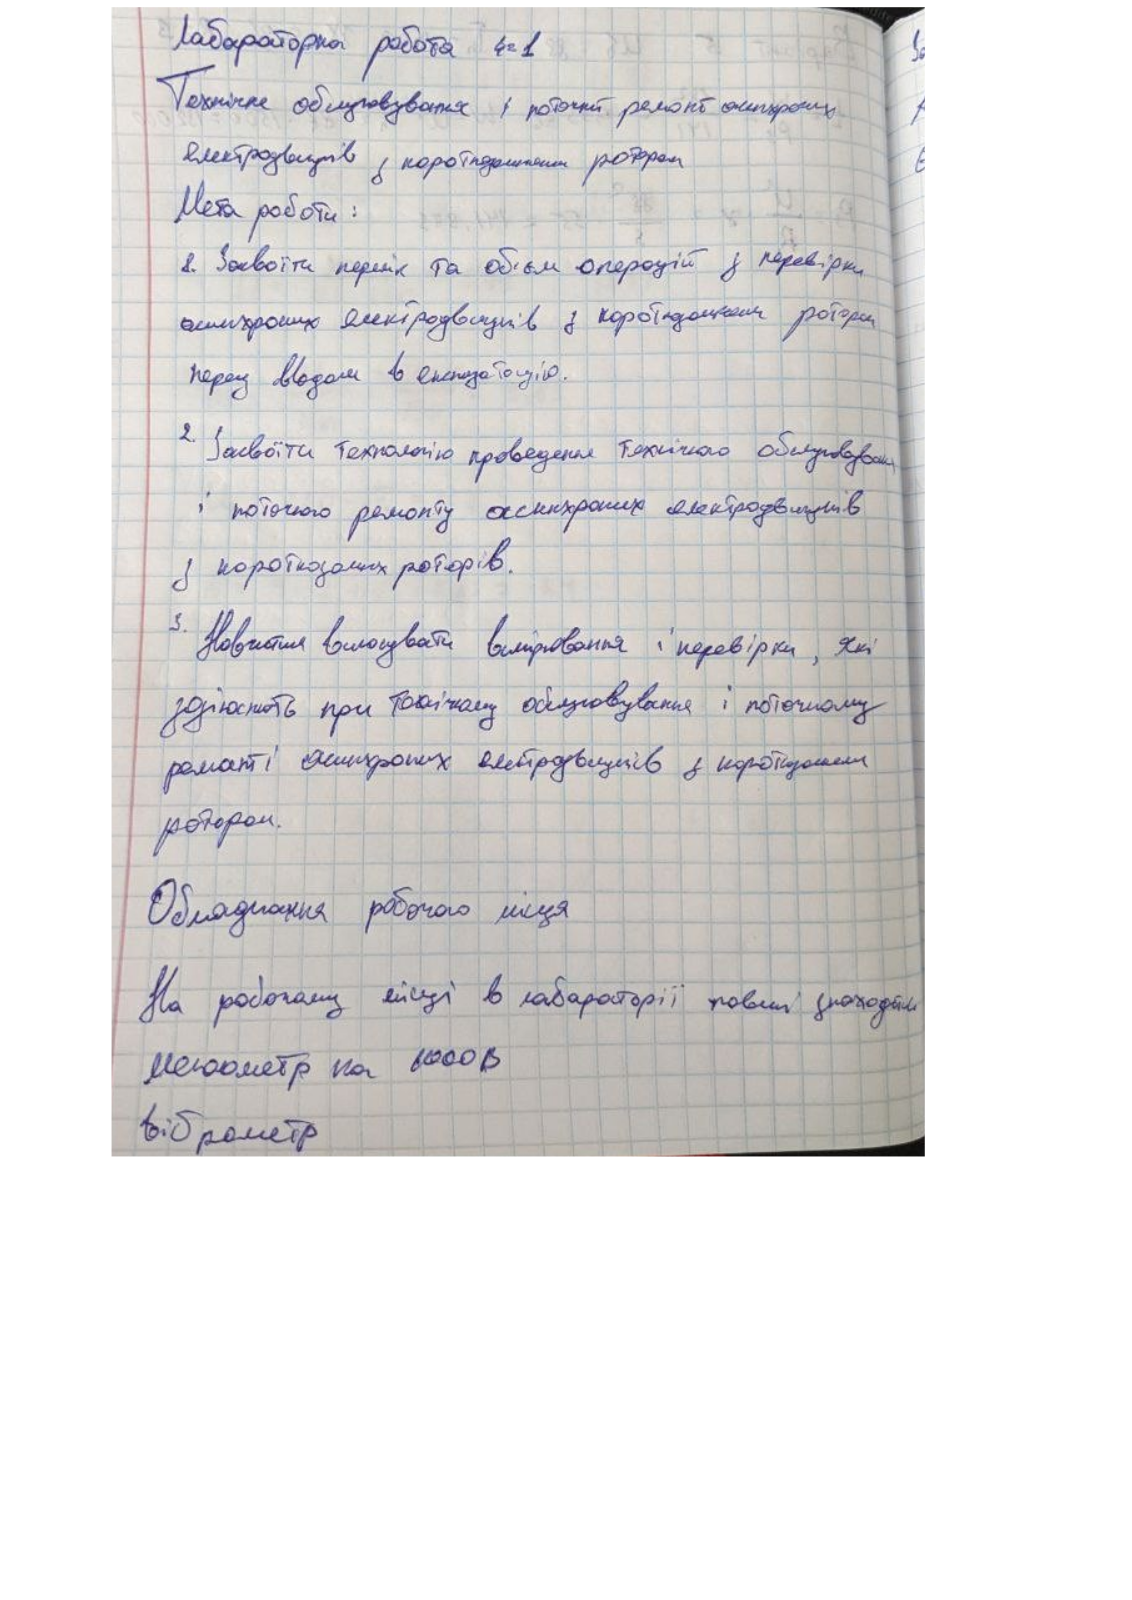 Лабараторна робота №1
Технічне обслуговування і поточний ремонт асинхроних
електродвигунів з короткозамкненим ротором
Мета роботи:
1. Засвоїти перелік та обсям операцій з перевірки
асинхроних електродвигунів з короткозамкненим ротором
перед вводом в експлуатацію.
2. Засвоїти технологію проведення технічного обслуговування
і поточного ремонту асинхроних електродвигунів
з короткозамких роторів.
3. Навчитися виконувати вимірювання і перевірки, які
здіюснють при технічному обслуговування і поточному
ремонті асинхроних електродвигунів з короткозамкненим
ротором.
Обладнання робочого місця
На робочому місці в лабараторії повині знаходитись
Мегаометр на 1000В
віброметр